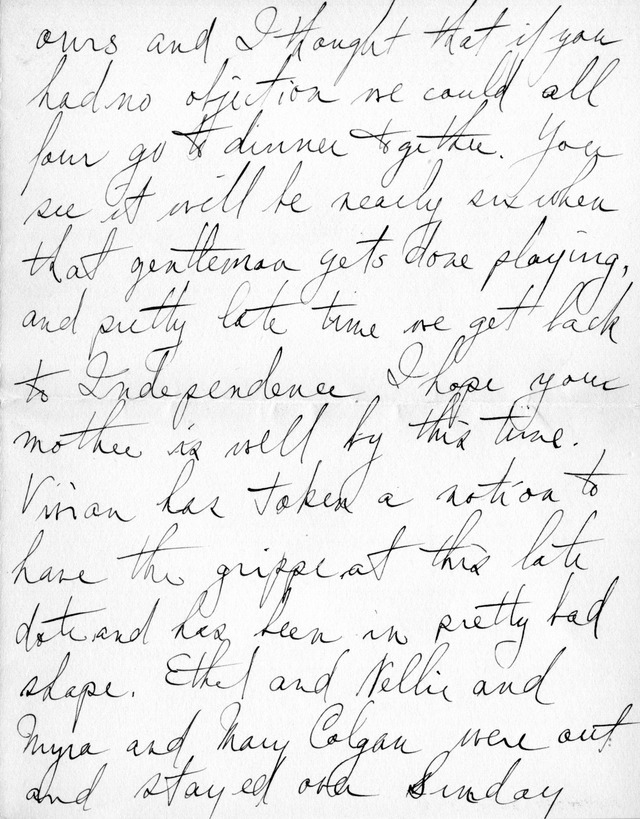 ours and I thought that if you
had no objection we could all
four go to dinner together. You
see it will be nearly six when
that gentleman gets done playing,
and pretty late time we get back
to Independence. I hope your
mother is well by this time.
Vivian has taken a notion to
have the grippe at this late
date and has been in pretty bad
shape. Ethel and Nellie and
Myra and Mary Colgan were out
and stayed over Sunday